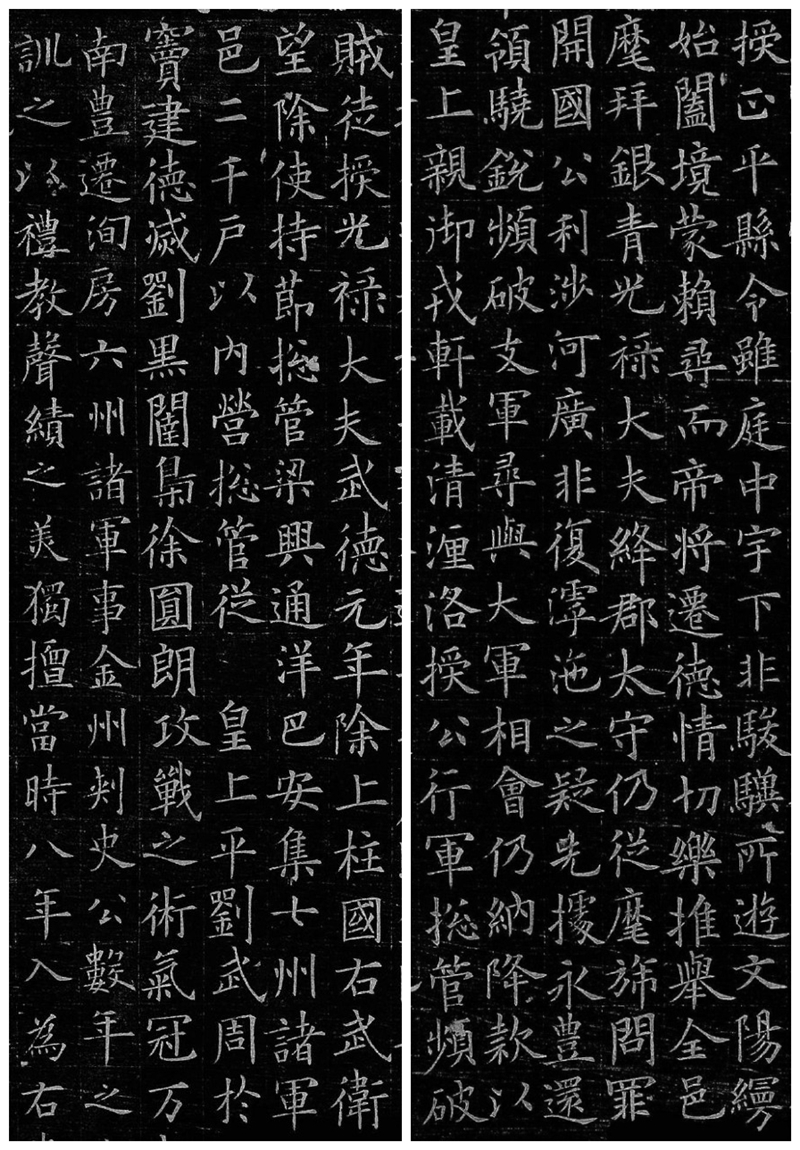 授正平縣令雖庭中宇下非駿驥所遊文陽縵
始闔境蒙賴尋而帝將遷德情切樂推舉全邑
麾拜銀青光祿大夫絳郡太守仍從麾旆問罪
開國公利涉河廣非復滹沲之疑先據永豊還
領驍銳頻破支軍尋與大軍相會仍納降款以
皇上親御戎軒載清瀍洛授公行軍揔管頻破
賊徒授光祿大夫武德元年除上柱國右武衛
望除使持節揔管梁興通洋巴安集七州諸軍
邑二千戶以內營揔管從 皇上平劉武周於
竇建德滅劉黑闥梟徐圓朗攻戰之術氣冠万
南豊遷洵房六州諸軍事金州刾史公數年之
訓之以禮教聲績之美獨擅當時八年入為右